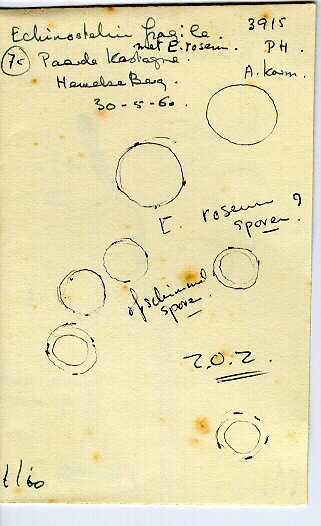 Echinostelium fragile. 3915
met E. roseum. PH
7c Paarde Kastagne. A. Korm.
Hemelse Berg
30-5-60.
E. roseum ?
sporen.
of schimmel
sporen.
Z.O.Z.
t/60